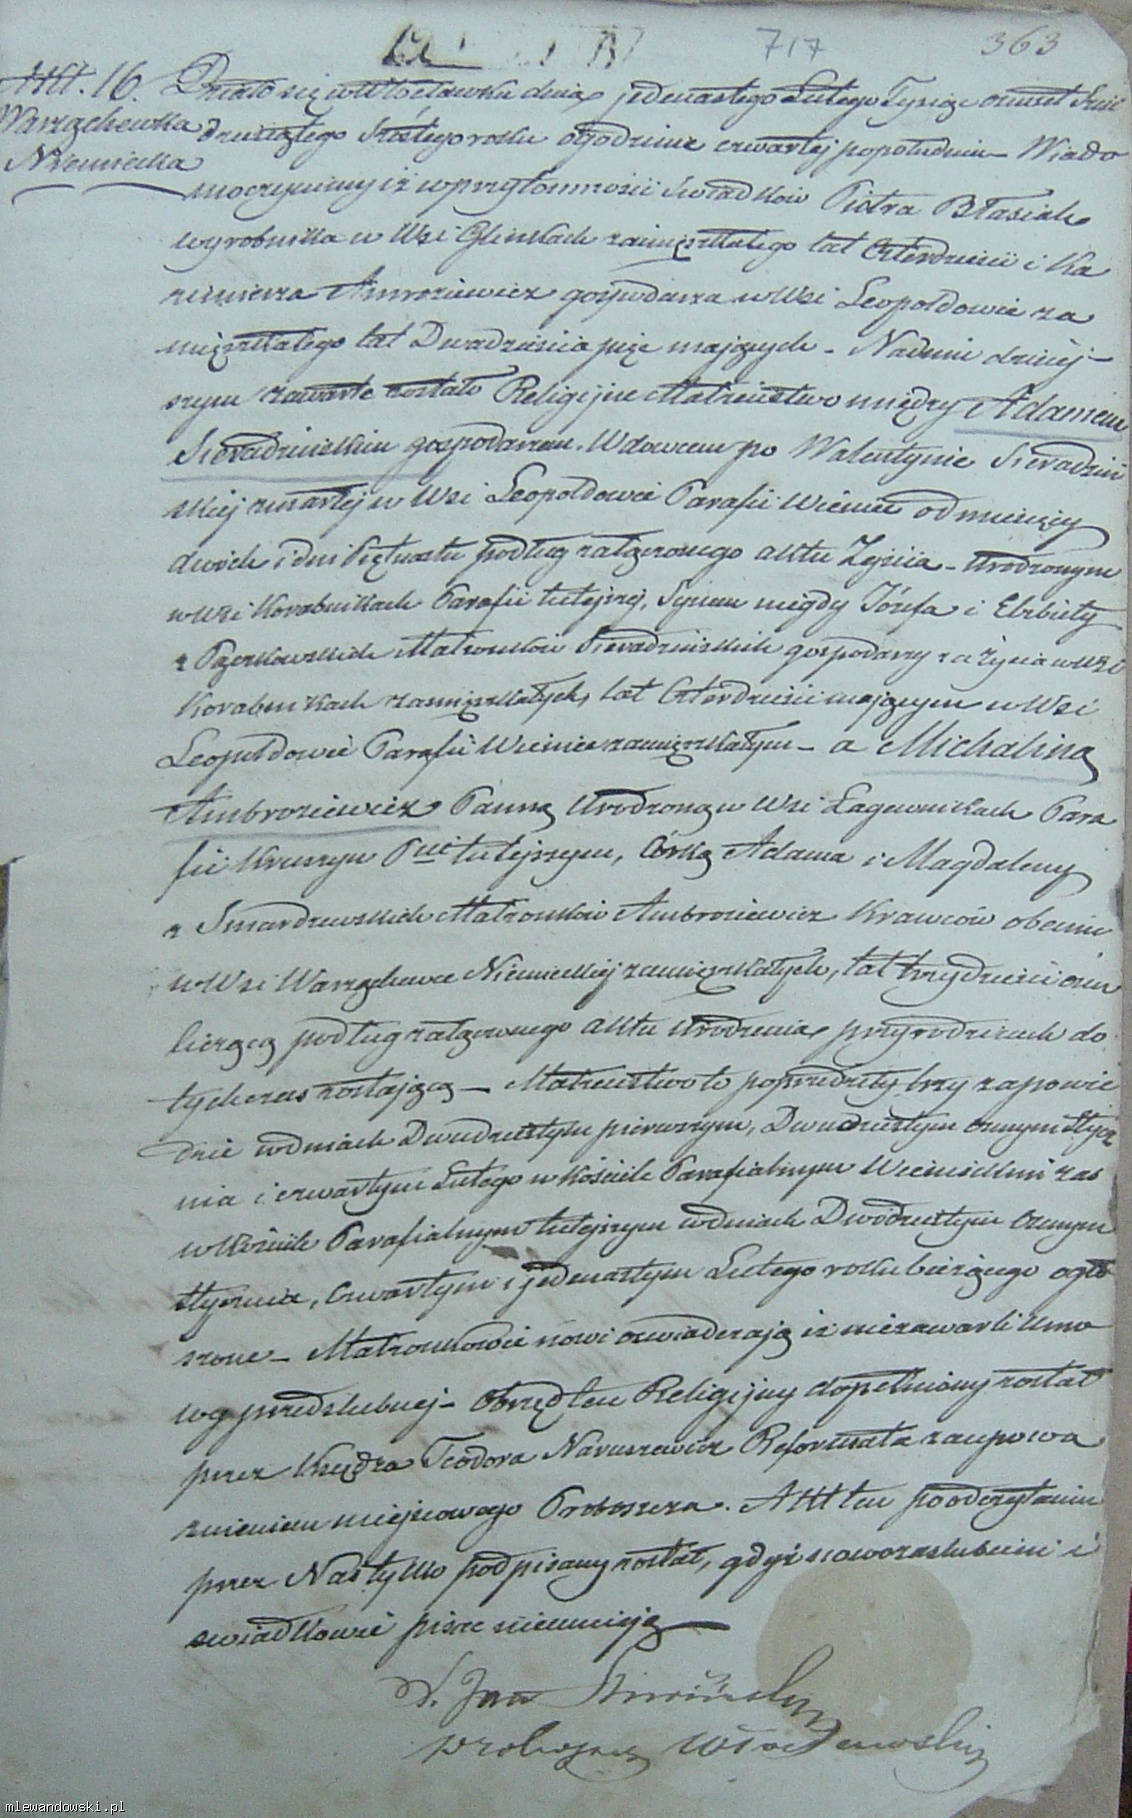 717 363
Akt. 16. Działo się w Włocławku dnia jedenastego Lutego Tysiąc ośmset Sześć
Warząchewka dziesiątego Szóstego roku o godzinie czwartej popołudniu – Wiado
Niemiecka
mo czynimy iż w przytomności Swiadków Piotra Błasiak
wyrobnika w Wsi Glinkach zamięszkałego lat Czterdzieści i Ka
zimierza Amroziewicz gospodarza w Wsi Leopoldowie za
mięszkałego lat Dwadzieścia pięć mających – Na dniu dzisiej–
szym zawarte zostało Religijne Małżeństwo między Adamem
Sieradzińskim gospodarzem. Wdowcem po Walentynie Sieradziń
skiej zmarłej w Wsi Leopoldowie Parafii Wieniec od miesięcy
dwóch i dni Piętnastu podług załączonego aktu Zejścia – urodzonym
w Wsi Korabnikach Parafii tutejszej, Synem niegdy Józefa i Elżbiety
z Małżonków Sieradzińskich gospodarzy za życia w Wsi
Korabnikach zamięszkałych, lat Czterdzieści mającym w Wsi
Leopoldowie Parafii Wieniec zamięszkałym – a Michaliną
Ambroziewicz Panną urodzoną w Wsi Łagiewnikach Para
fii Kruszyn P<sup>cie</sup> tutejszym, Córką Adama i Magdaleny
z Smardzewskich Małżonków Ambroziewicz Krawców obecnie
w Wsi Warząchewce Niemieckiej zamięszkałych, lat trzydzieści ośm
liczącą podług załączonego aktu urodzenia, przy rodzicach do
tychczas zostającą – Małżeństwo to poprzedziły trzy zapowie
dzie w dniach Dwudziestym pierwszym, Dwudziestym ósmym Stycz
nia i czwartym Lutego w kościele Parafialnym Wienieckim zaś
w kościele Parafialnym tutejszym w dniach Dwódziestym ósmym
Stycznia, Czwartym i jedenastym Lutego roku bieżącego ogło
szone – Małżonkowie nowi oświadczają iż niezawarli umo
wy przedślubnej – Obrzęd ten Religijny dopełniony został
przez Księdza Teodora Naruszewicz Reformata za upowa
żnieniem miejscowego Proboszcza. Akt ten po odczytaniu
przez Nas tylko podpisany został, gdyż nowozaślubieni i
świadkowie pisać nieumieją
X. Jan
proboszcz Włocławski
mlewandowski.pl